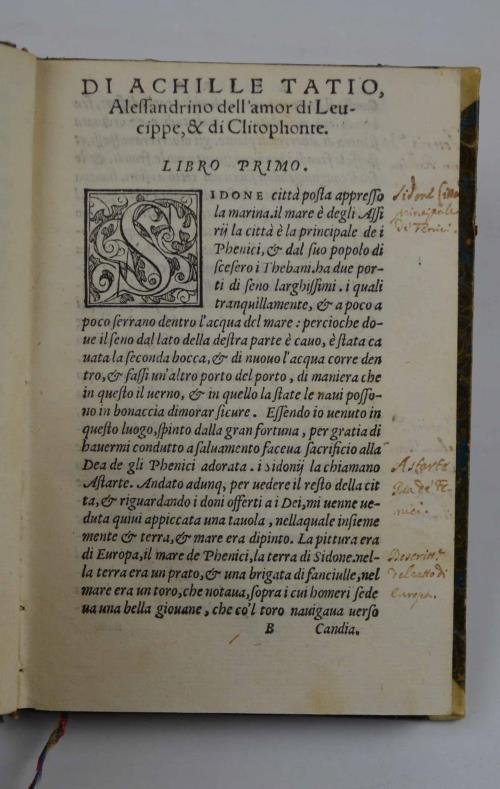 DI ACHILLE TATIO,
Alessandrino dell'amor di Leu-
cippe, & di Clitophonte.
LIBRO PRIMO.
SIDONE città posta appresso
la marina. il mare è degli Assi
rij la città è la principale de i
Phenici, & dal suo popolo di
scesero i Thebani. ha due por-
ti di seno larghissimi. i quali
tranquillamente, & a poco a
poco serrano dentro l'acqua del mare: percioche do-
ue il seno dal lato della destra parte è cauo, è stata ca
uata la seconda bocca, & di nuouo l'acqua corre den
tro, & fassi un'altro porto del porto, di maniera che
in questo il uerno, & in quello la state le naui posso-
no in bonaccia dimorar sicure. Essendo io uenuto in
questo luogo, spinto dalla gran fortuna, per gratia di
hauermi condutto a saluamento faceua sacrificio alla
Dea de gli Phenici adorata. i Sidonij la chiamano
Astarte. Andato adunq, per uedere il resto della cit
tà, & riguardando i doni offerti a i Dei, mi uenne ue-
duta quiui appiccata una tauola, nellaquale insieme
mente & terra, & mare era dipinto. La pittura era
di Europa, il mare de Phenici, la terra di Sidone. nel-
la terra era un prato, & una brigata di fanciulle, nel
mare era un toro, che notaua, sopra i cui homeri sede
ua una bella giouane, che co'l toro nauigaua uerso
B Candia.
Sidone
principale
di Fenici.
Astarte
Dea de Fe-
nici.
del ratto di
Europa.